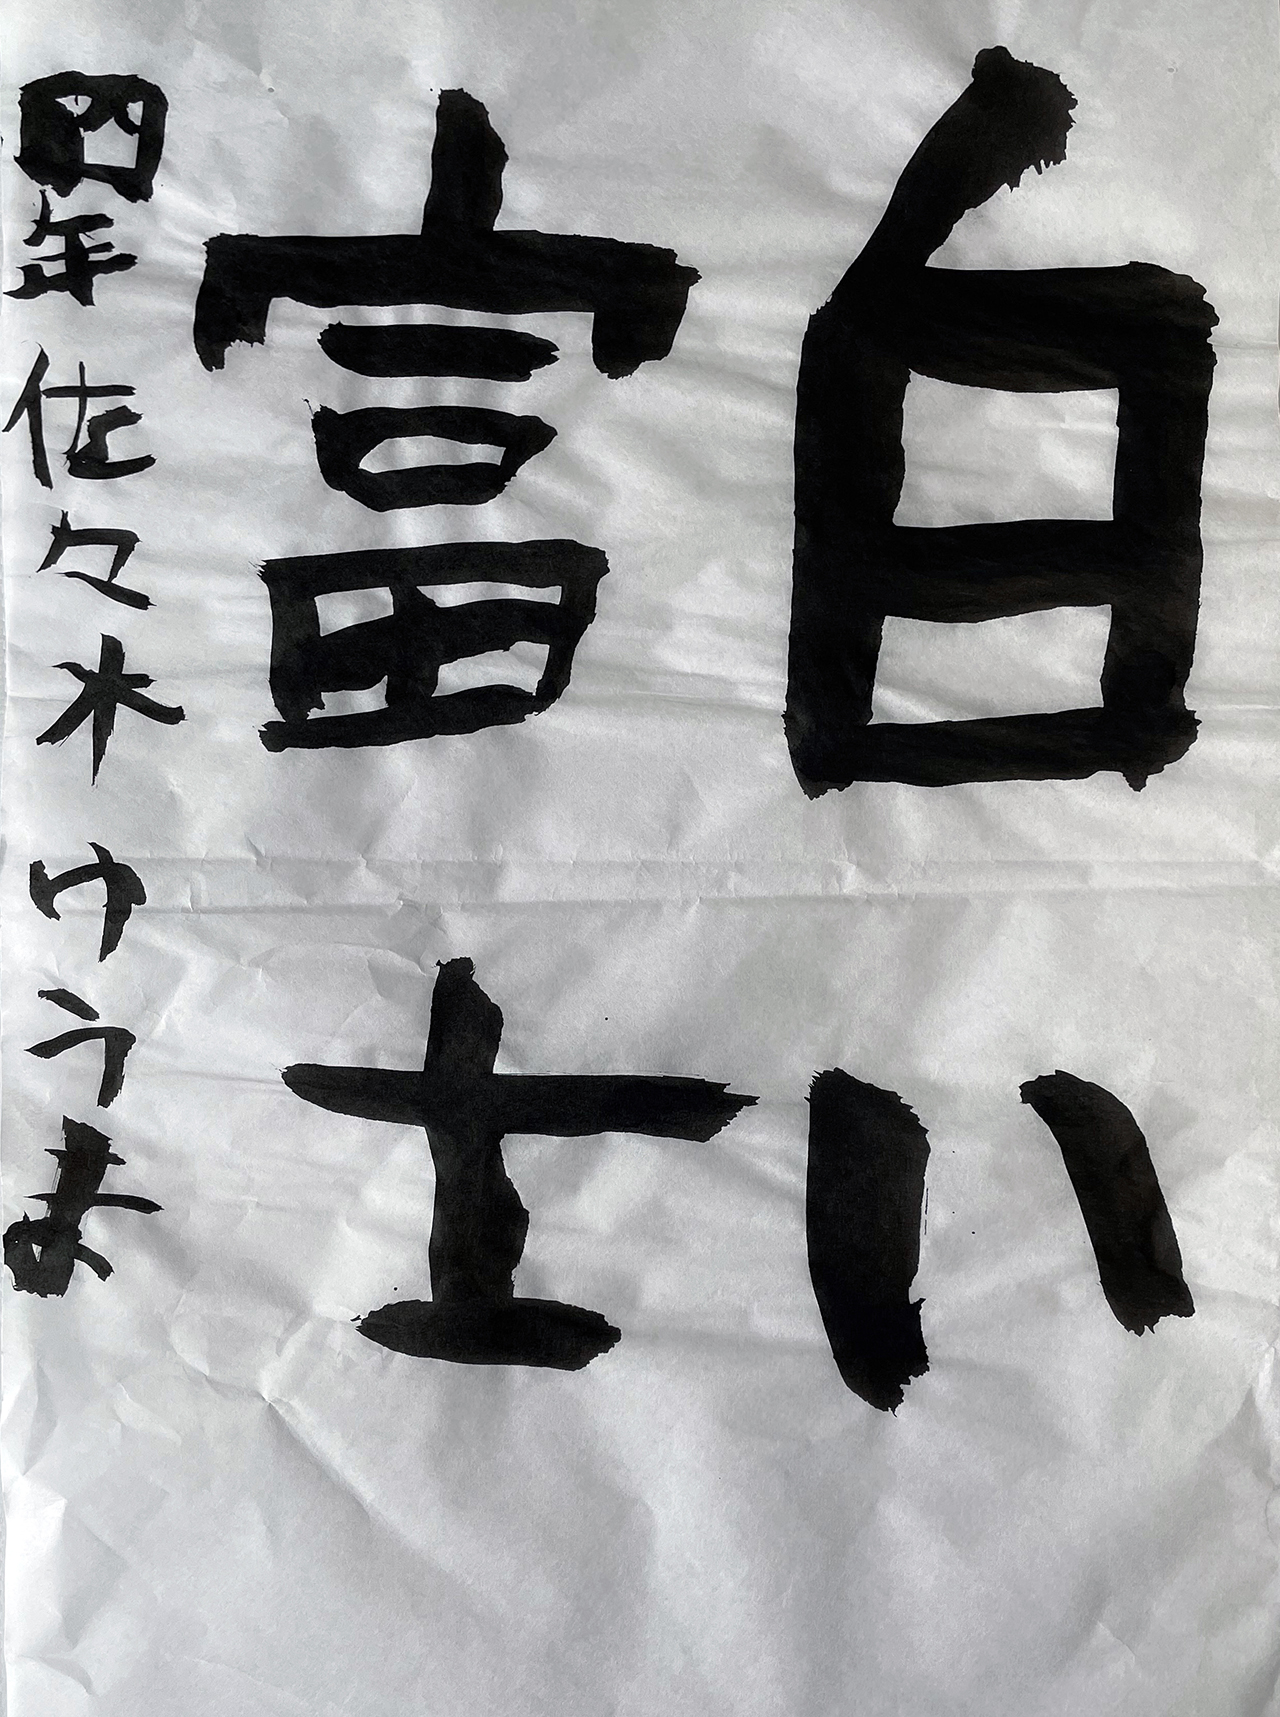 白い
富士
四年 佐々木 ゆうま